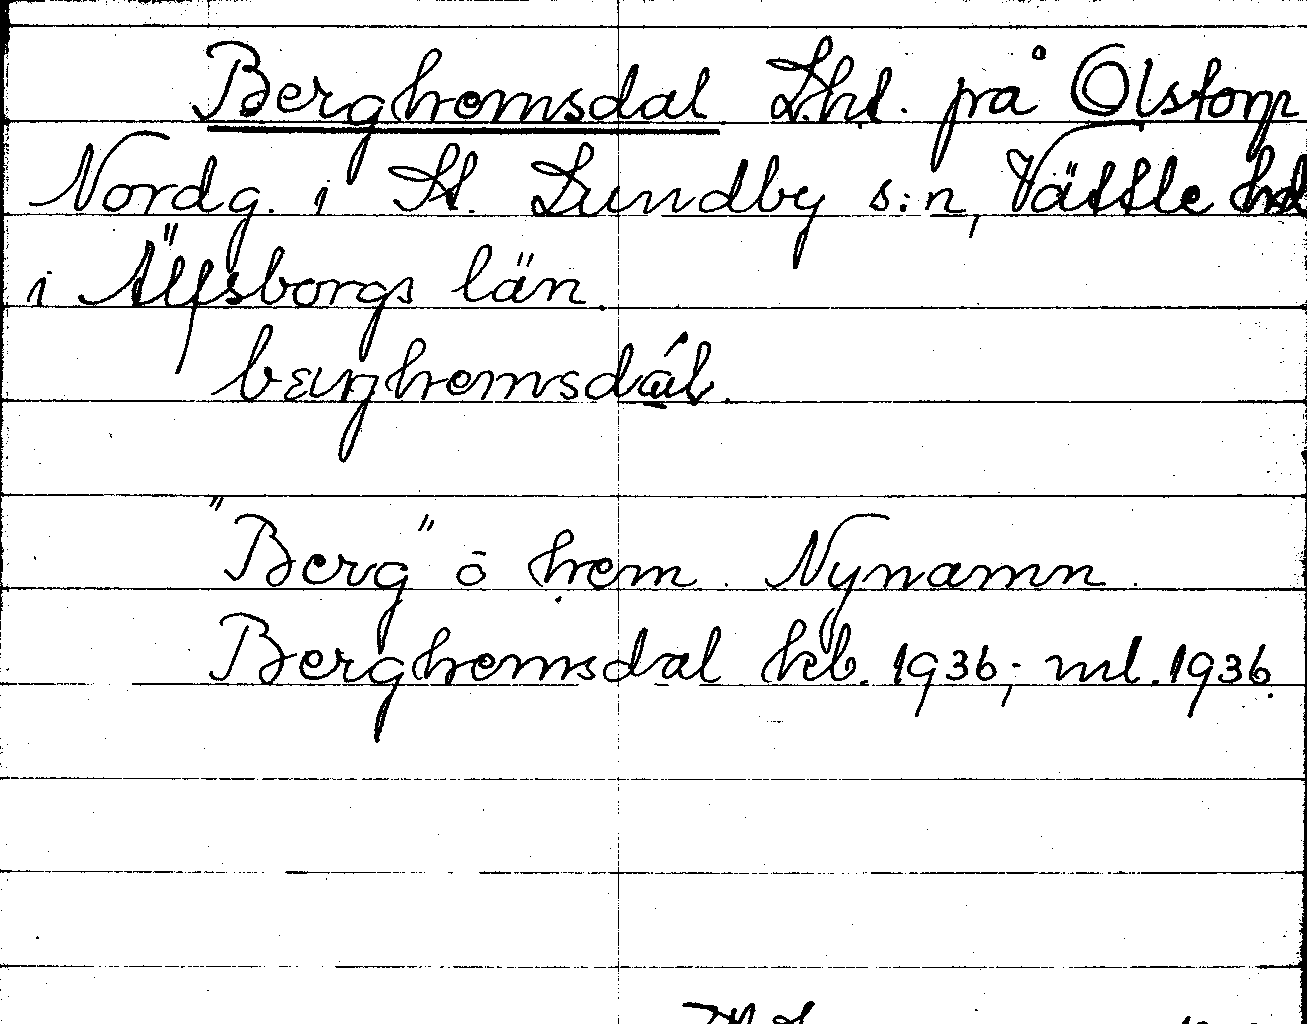 Berghemsdal Lht. på Olstorp
Nordg. i St. Lundby s:n, Vättle hd
i Älfsborgs län.
bærghemsdál.
"Berg" o hem. Nynamn.
Berghemsdal kb. 1936; ml. 1936.